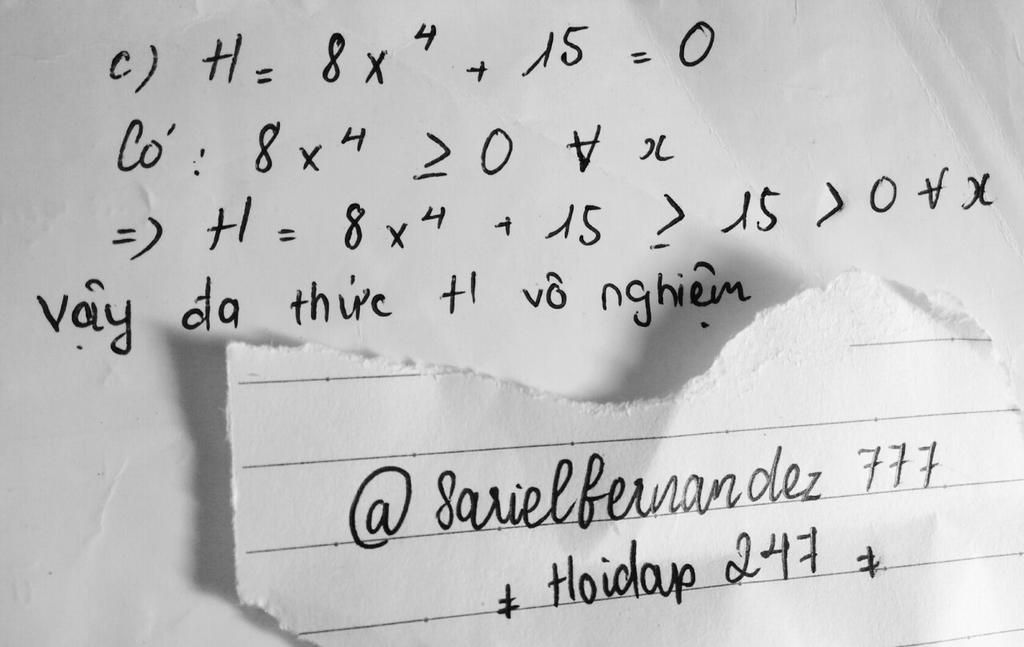 c) H = 8x⁴ + 15 = 0
Có: 8x⁴ ≥ 0 ∀ x
=> H = 8x⁴ + 15 ≥ 15 > 0 ∀ x
Vậy đa thức H vô nghiệm
@sarielfernandez 777
‡ Hoidap 247 ‡